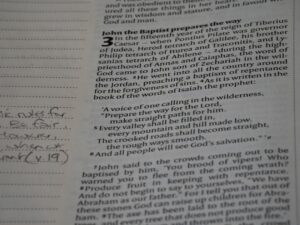 and was obedient to them
ured all these things in her heart.
grew in wisdom and stature, and in favour
God and man.
John the Baptist prepares the way
3 In the fifteenth year of the reign of Tiberius
Caesar — when Pontius Pilate was governor
of Judea, Herod tetrarch of Galilee, his brother
Philip tetrarch of Iturea and Traconitis, and Ly-
sanias tetrarch of Abilene — during the high-
priesthood of Annas and Caiaphas, the word of
God came to John son of Zechariah in the wil-
derness. He went into all the country around
the Jordan, preaching a baptism of repentance
for the forgiveness of sins. As it is written in the
book of the words of Isaiah the prophet:
'A voice of one calling in the wilderness,
"Prepare the way for the Lord,
make straight paths for him.
Every valley shall be filled in,
every mountain and hill made low.
The crooked roads shall become straight,
the rough ways smooth.
And all people will see God's salvation." '
John said to the crowds coming out to be
baptised by him, 'You brood of vipers! Who
warned you to flee from the coming wrath?
Produce fruit in keeping with repentance.
And do not begin to say to yourselves, "We have
Abraham as our father." For I tell you that out of
these stones God can raise up children for Abra-
ham. The axe has been laid to the root of the
and every tree that does not produce good
thrown into the fire.
rules for
(v.19)